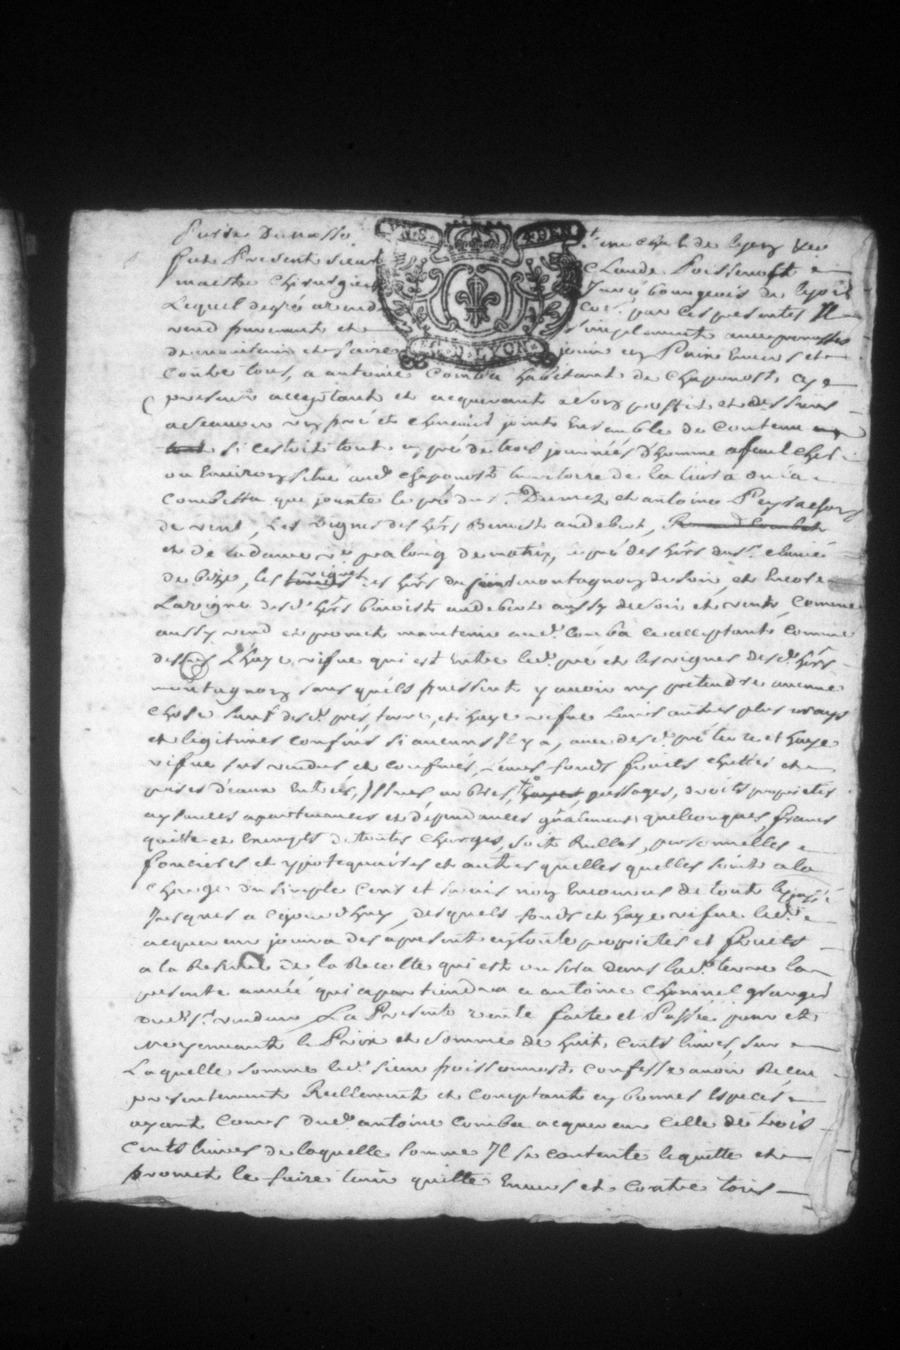 fut Present sieur Claude Poissenost
maistre chirurgien Juré bourgeois de lyon
Lequel de gré a vendu par ces presentes Il
vend purement et simplement avec promesse
de maintenir et faire jouir en Paix Envers et
Contre tous, a antoine Comba habitant de Chaponost, cy
present acceptant et acquerant a son proffit et des siens
ascavoir un pré et joints Ensemble de Contenu
si cestoit tout en pré de trois journées d'homme a faulcher
ou Environ situé aud. chaponost territoire de la
que jouxte le pré du Sr. Dumez et antoine
de vent, Les vignes des hers Benoist audebert,
et de la dame de le pré des hers du Sr.
de les vignes des hers du montagnon de soir, et Encore
La vigne desd. hers benoist audebert aussy de soir et vent, Comme
aussy vend et promet maintenir aud. Comba ce acceptant comme
dessus L'haye vifve qui est Entre led. pré et les vignes desd. hers
montagnon sans qu'ils puissent y avoir ny pretendre aucune
Chose sur desd. pré, terre, et haye vifve Leurs autres plus vrays
et legitimes confins si aucuns Il y a, avec desd. pré terre et haye
vifve sus vendus et confinés, Leurs fonds fruits
prises d'eaux Entrées, Issues arbres, passages, droits proprietés
aysances apartenances et dépendances generalement quelconques, francs
quitte et Exempts de toutes Charges, soit Réelles, personnelles
foncieres et ypotequaires et autres quelles quelles soint a la
Charge du simple Cens et servis non Encourus de tout le passé
Jusques a ce jourd'huy, desquels fonds et haye vifve led.
acquereur jouira des apresent en toute proprietés et fruits
a la Reserve de la Recolte qui est ou sera dans lad. terre la
presente année qui apartiendra a antoine granger
dud. Sr. vendeur La Presente vente faite et Passée pour et
moyennant le Prix et somme de huit cents livres, sur
Laquelle somme led. sieur poissonnost confesse avoir Receu
presentement Réellement et comptant en bonnes Especes
ayant Cours dud. antoine Comba acquereur Celle de trois
Cents livres de laquelle somme Il se contente le quitte et
promet le faire tenir quitte Envers et Contre tous
D. LYON